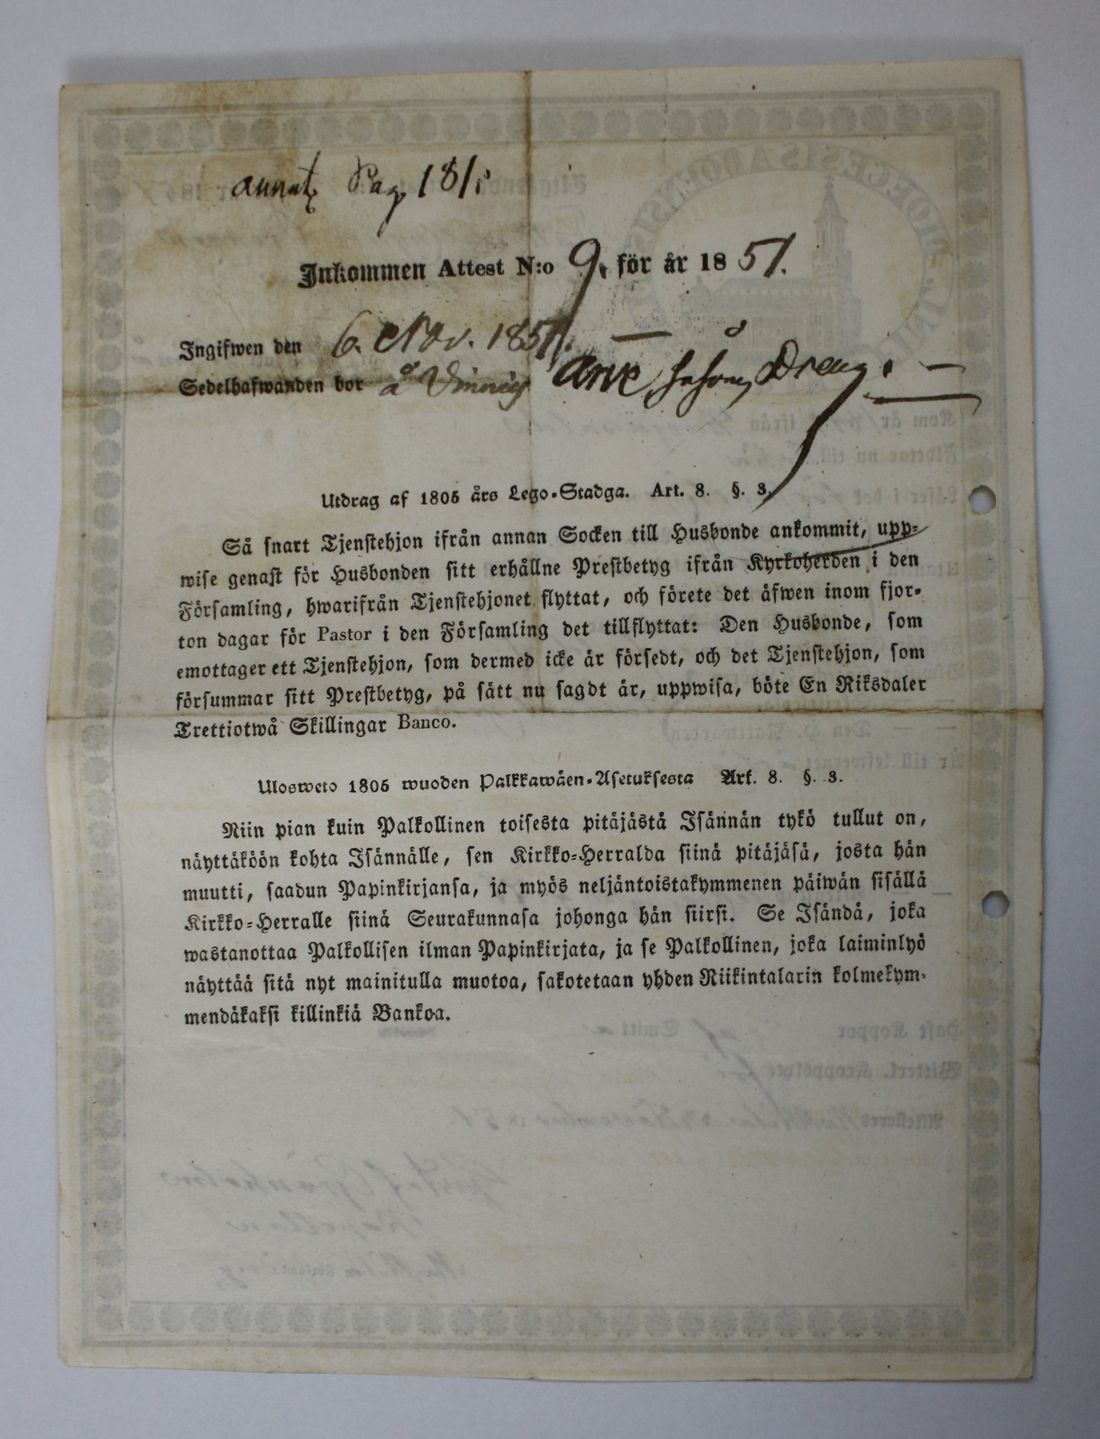 Pag 181
Inkommen Attest N:o 9. för år 1851.
Ingifwen den 6. Nov. 1851. —
Sedelhafwanden bor å Dreng. —
Utdrag af 1805 års Lego-Stadga. Art. 8. §. 3.
Så snart Tjenstehjon ifrån annan Socken till Husbonde ankommit, upp-
wise genast för Husbonden sitt erhållne Prestbetyg ifrån Kyrkoherden i den
Församling, hwarifrån Tjenstehjonet flyttat, och förete det äfwen inom fjor-
ton dagar för Pastor i den Församling det tillflyttat: Den Husbonde, som
emottager ett Tjenstehjon, som dermed icke är försedt, och det Tjenstehjon, som
försummar sitt Prestbetyg, på sätt nu sagdt är, uppwisa, böte En Riksdaler
Trettiotwå Skillingar Banco.
Ulosweto 1805 wuoden Palkkawäen-Asetuksesta Art. 8. §. 3.
Niin pian kuin Palkollinen toisesta pitäjästä Isännän tykö tullut on,
näyttäköön kohta Isännälle, sen Kirkko-Herralda siinä pitäjäsä, josta hän
muutti, saadun Papinkirjansa, ja myös neljäntoistakymmenen päiwän sisällä
Kirkko-Herralle siinä Seurakunnasa johonga hän siirsi. Se Isändä, joka
wastanottaa Palkollisen ilman Papinkirjata, ja se Palkollinen, joka laiminlyö
näyttää sitä nyt mainitulla muotoa, sakotetaan yhden Riikintalarin kolmekym-
mendäkaksi killinkiä Bankoa.